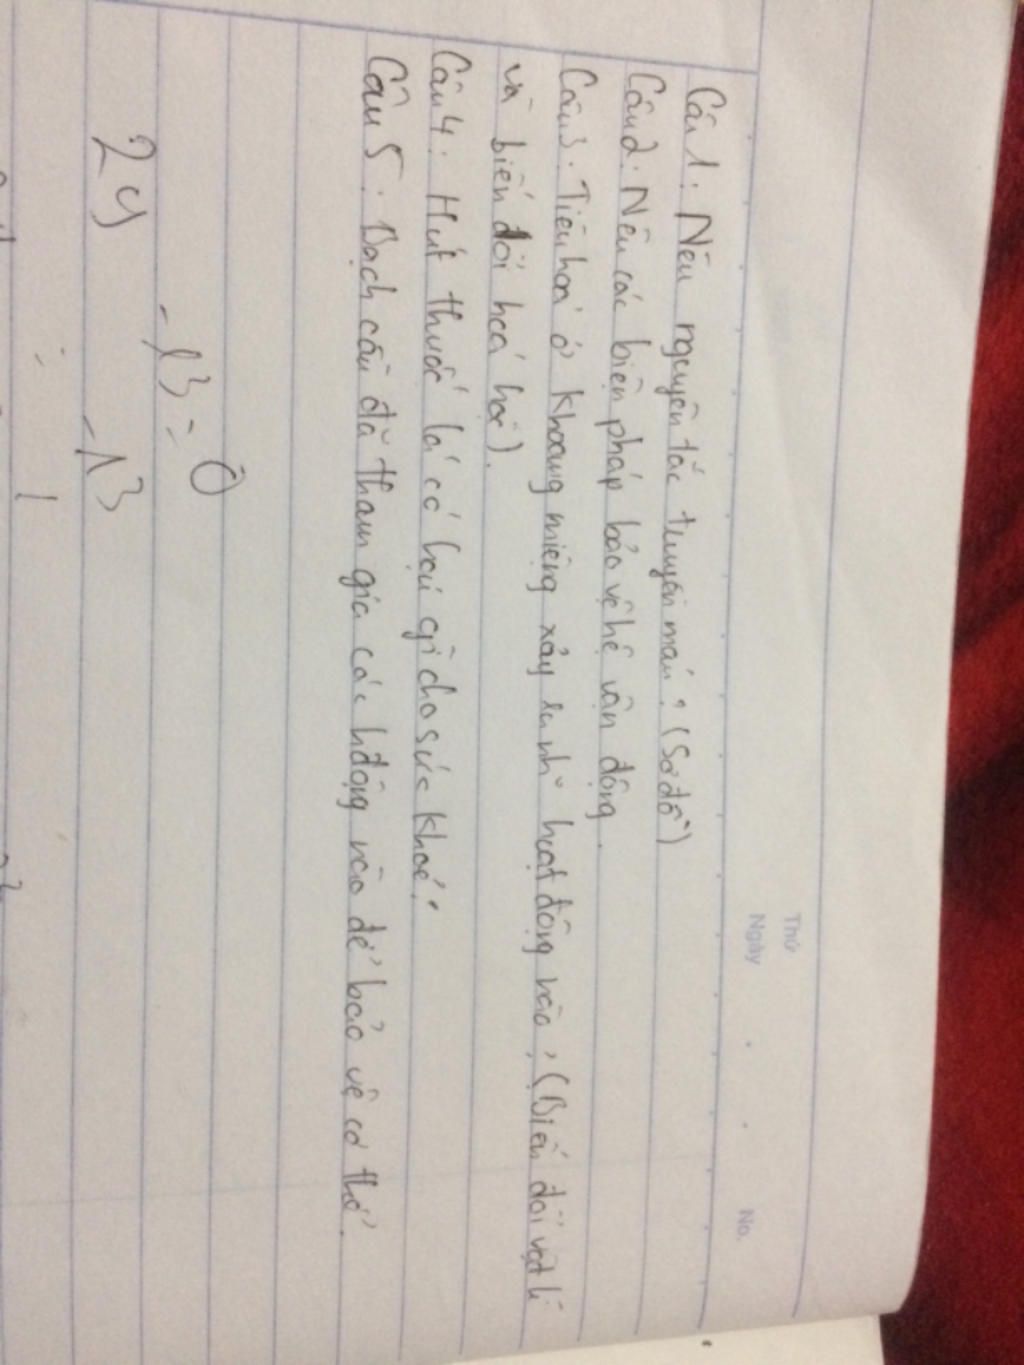 Thứ
Ngày
No.
Câu 1. Nêu nguyên tắc truyền máu? (Sơ đồ)
Câu 2. Nêu các biện pháp bảo vệ hệ vận động.
Câu 3. Tiêu hoá ở khoang miệng xảy ra nhữ hoạt động nào? (Biến đổi vật lí
và biến đổi hoá học).
Câu 4. Hút thuốc lá có hại gì cho sức khoẻ?
Câu 5. Bạch cầu đã tham gia các hđộng nào để bảo vệ cơ thể.
-13 = 0
24 -13